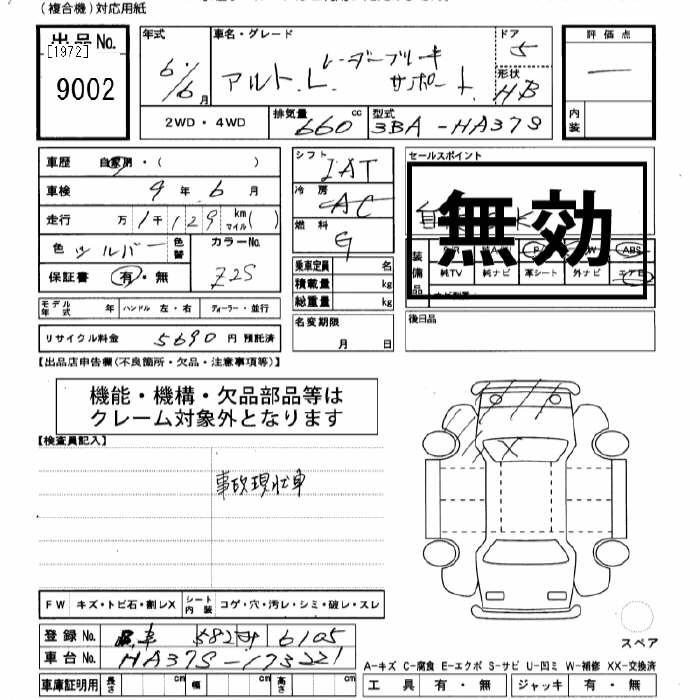 (複合機)対応用紙
出品No.
[1972]
9002
年式
6/6月
車名・グレード
アルト. L. レーダーブレーキ
サポート
ドア
5
形状
HB
評価点
内装
2WD・4WD
排気量
660 cc
型式
3BA-HA37S
車歴 自家用・( )
車検 9年 6月
走行 万1千129 km マイル( )
色 シルバー
色替
カラーNo.
Z2S
保証書 有・無
シフト
IAT
冷房
AC
燃料
G
乗車定員 名
積載量 kg
総重量 kg
セールスポイント
無効
装備品
P/S
P/W
ABS
純TV 純ナビ 革シート 外ナビ エアB
モデル年式 年 ハンドル 左・右 ディーラー・並行
リサイクル料金 5690 円 預託済
名変期限
月 日
後日品
【出品店申告欄(不良箇所・欠品・注意事項等)】
機能・機構・欠品部品等は
クレーム対象外となります
【検査員記入】
事故現状車
FW キズ・トビ石・割レX シート内装 コゲ・穴・汚レ・シミ・破レ・スレ
X
スペア
登録No. 582 6105
車台No. HA37S-173221
車庫証明用 長さ cm 幅 cm 高さ cm
A-キズ C-腐食 E-エクボ S-サビ U-凹ミ W-補修 XX-交換済
工具 有・無 ジャッキ 有・無